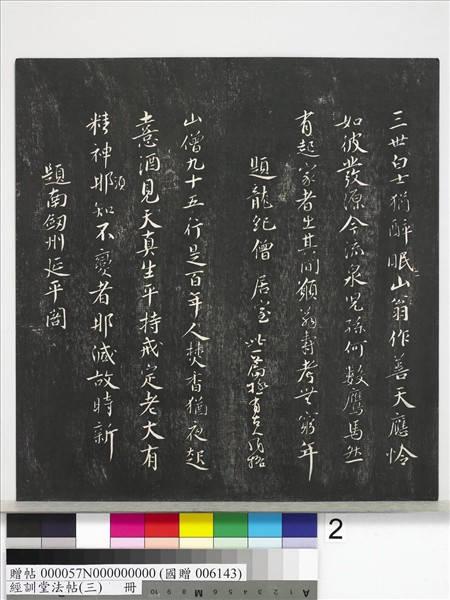 三世白士猶醉眠山翁作善天應怜
如彼發源今流泉兒孫何數鷹馬然
有起家者出其間願翁壽考無窮年
題龍 僧居室 此一篇極有古人風格
山僧九十五行是百年人焚香猶夜起
憙酒見天真生平持戒定老大有
精神耶須知不變者耶減故時新
題南劒州延平閣
2
贈帖 000057N000000000 (國贈 006143)
經訓堂法帖(三) 冊